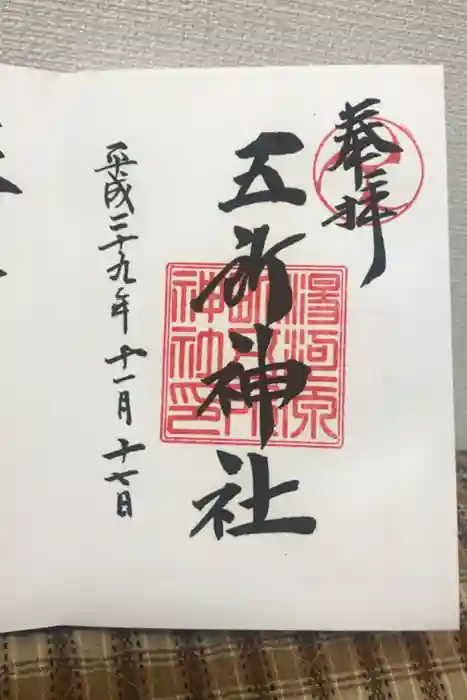 奉拝
五所神社
湯河原
町五所
神社印
平成二十九年十一月十七日